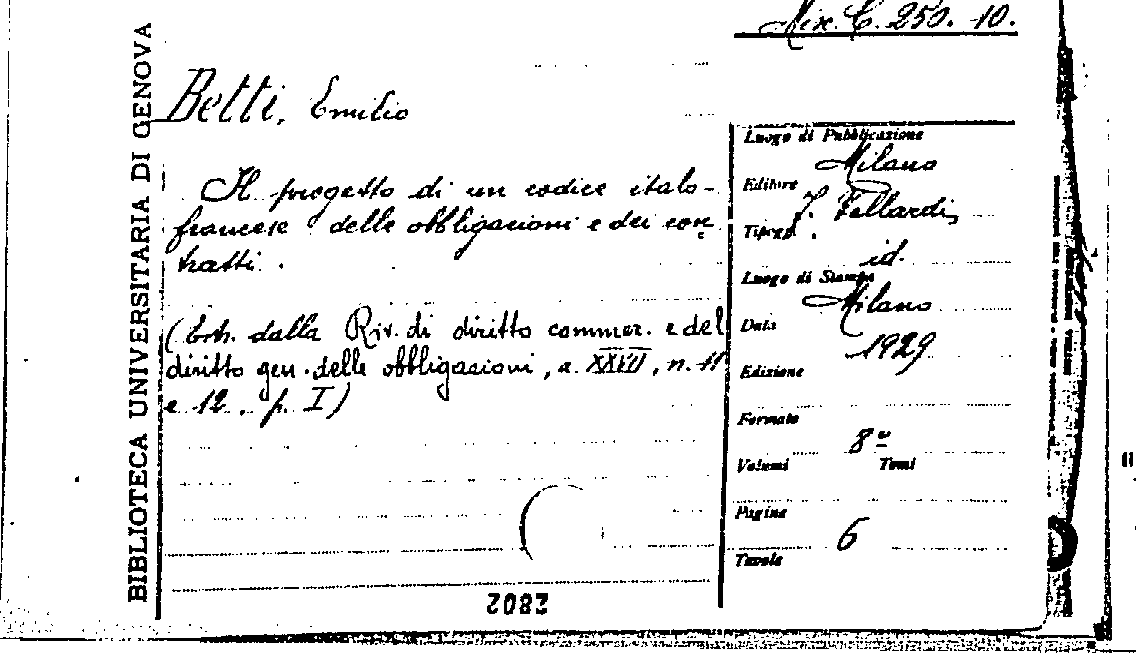 Mix. C. 250. 10.
BIBLIOTECA UNIVERSITARIA DI GENOVA
Betti, Emilio
Il progetto di un codice italo-
francese delle obbligazioni e dei con
tratti.
(Estr. dalla Riv. di diritto commer. e del
diritto gen. delle obbligazioni, a. XXVII, n. 11
e 12. p. I)
Luogo di Pubblicazione
Milano
Editore
F. Vallardi
Tipogr.
id.
Luogo di Stampa
Milano
Data
1929
Edizione
Formato
8º
Volumi Tomi
Pagine
6
Tavole
2802